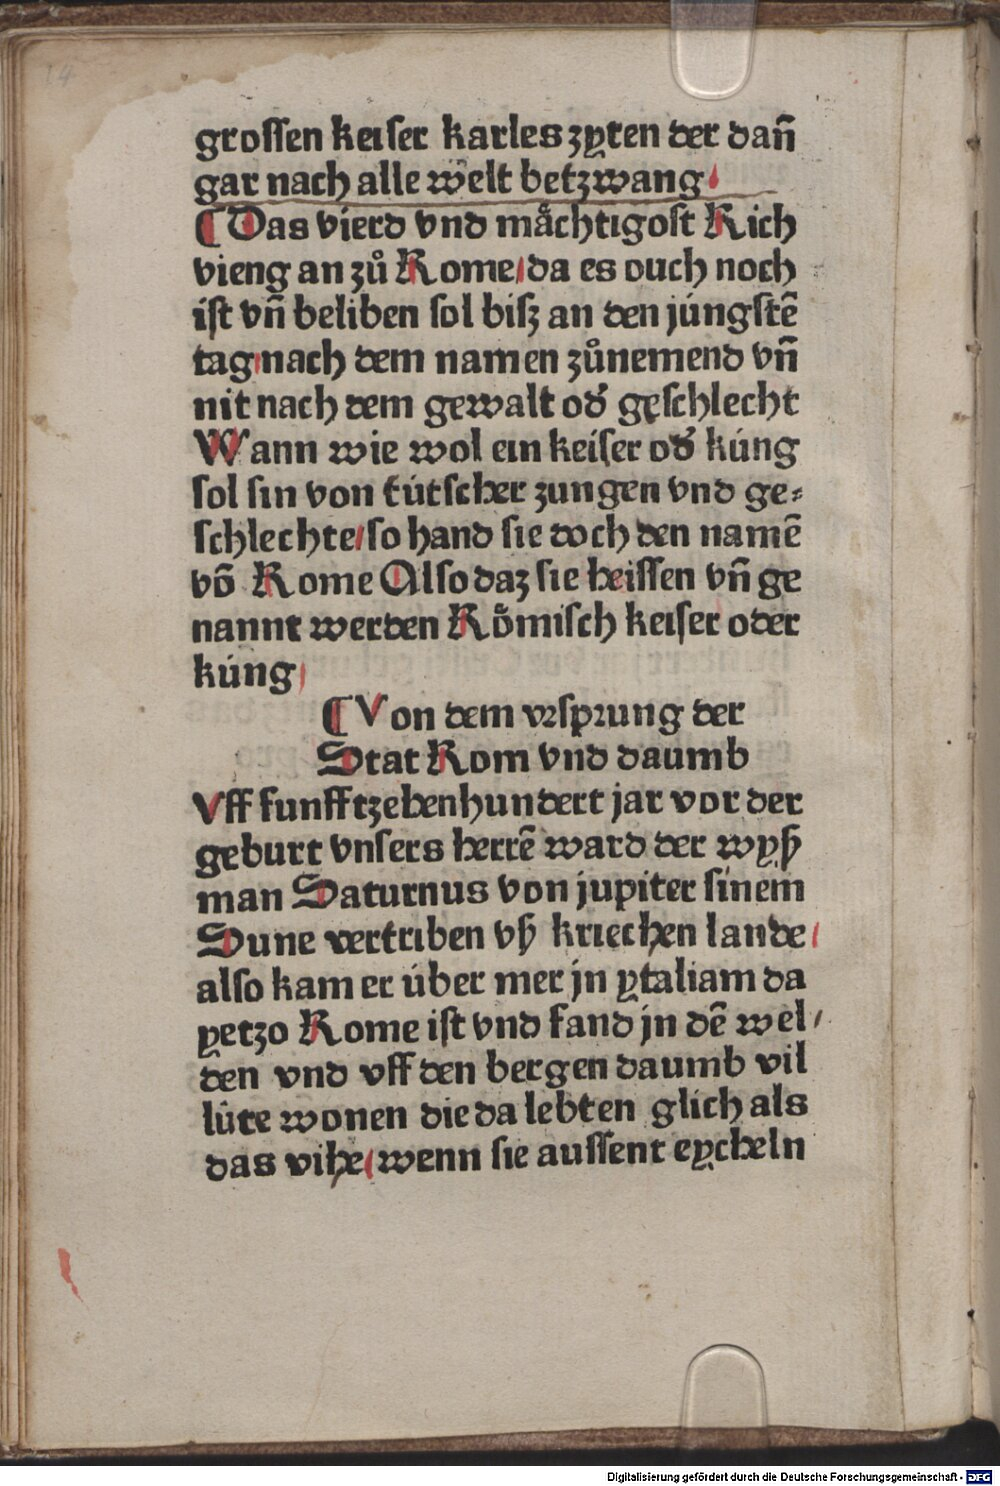 14
groſſen keiſer karles zyten der dan̄
gar nach alle welt betzwang
¶ Das vierd vnd maͤchtigoſt Rich
vieng an zuͦ Rome / da es ouch noch
iſt vn̄ beliben ſol biſz an den júngſtē
tag / nach dem namen zuͦnemend vn̄
nit nach dem gewalt od' geſchlecht
Wann wie wol ein keiſer od' kúng
ſol ſin von tútſcher zungen vnd ge⸗
ſchlechte / ſo hand ſie doch den namē
vō Rome Alſo daz ſie heiſſen vn̄ ge
nannt werden Roͤmiſch keiſer oder
kúng /
¶ Von dem vrſprung der
Stat Rom vnd daumb
Vff funfftzehenhundert jar vor der
geburt vnſers herrē ward der wyſʒ
man Saturnus von jupiter ſinem
Sune vertriben vſʒ kriechen lande /
alſo kam er úber mer jn ytaliam da
yetzo Rome iſt vnd fand jn dē wel⸗
den vnd vff den bergen daumb vil
lûte wonen die da lebten glich als
das vihe / wenn ſie auſſent eycheln
Digitalisierung gefördert durch die Deutsche Forschungsgemeinschaft - DFG